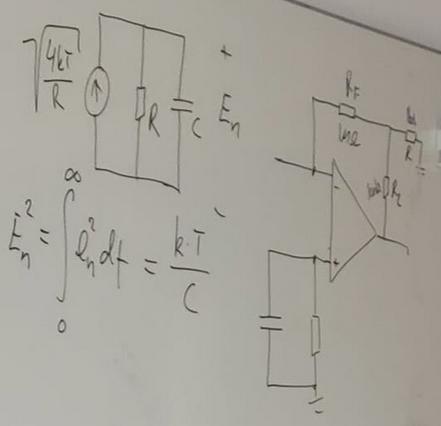 √4kT/R
R
C
+
E_n
-
E_n^2 = ∫_0^∞ e_n^2 df = k·T/C
R_F
R
-
+